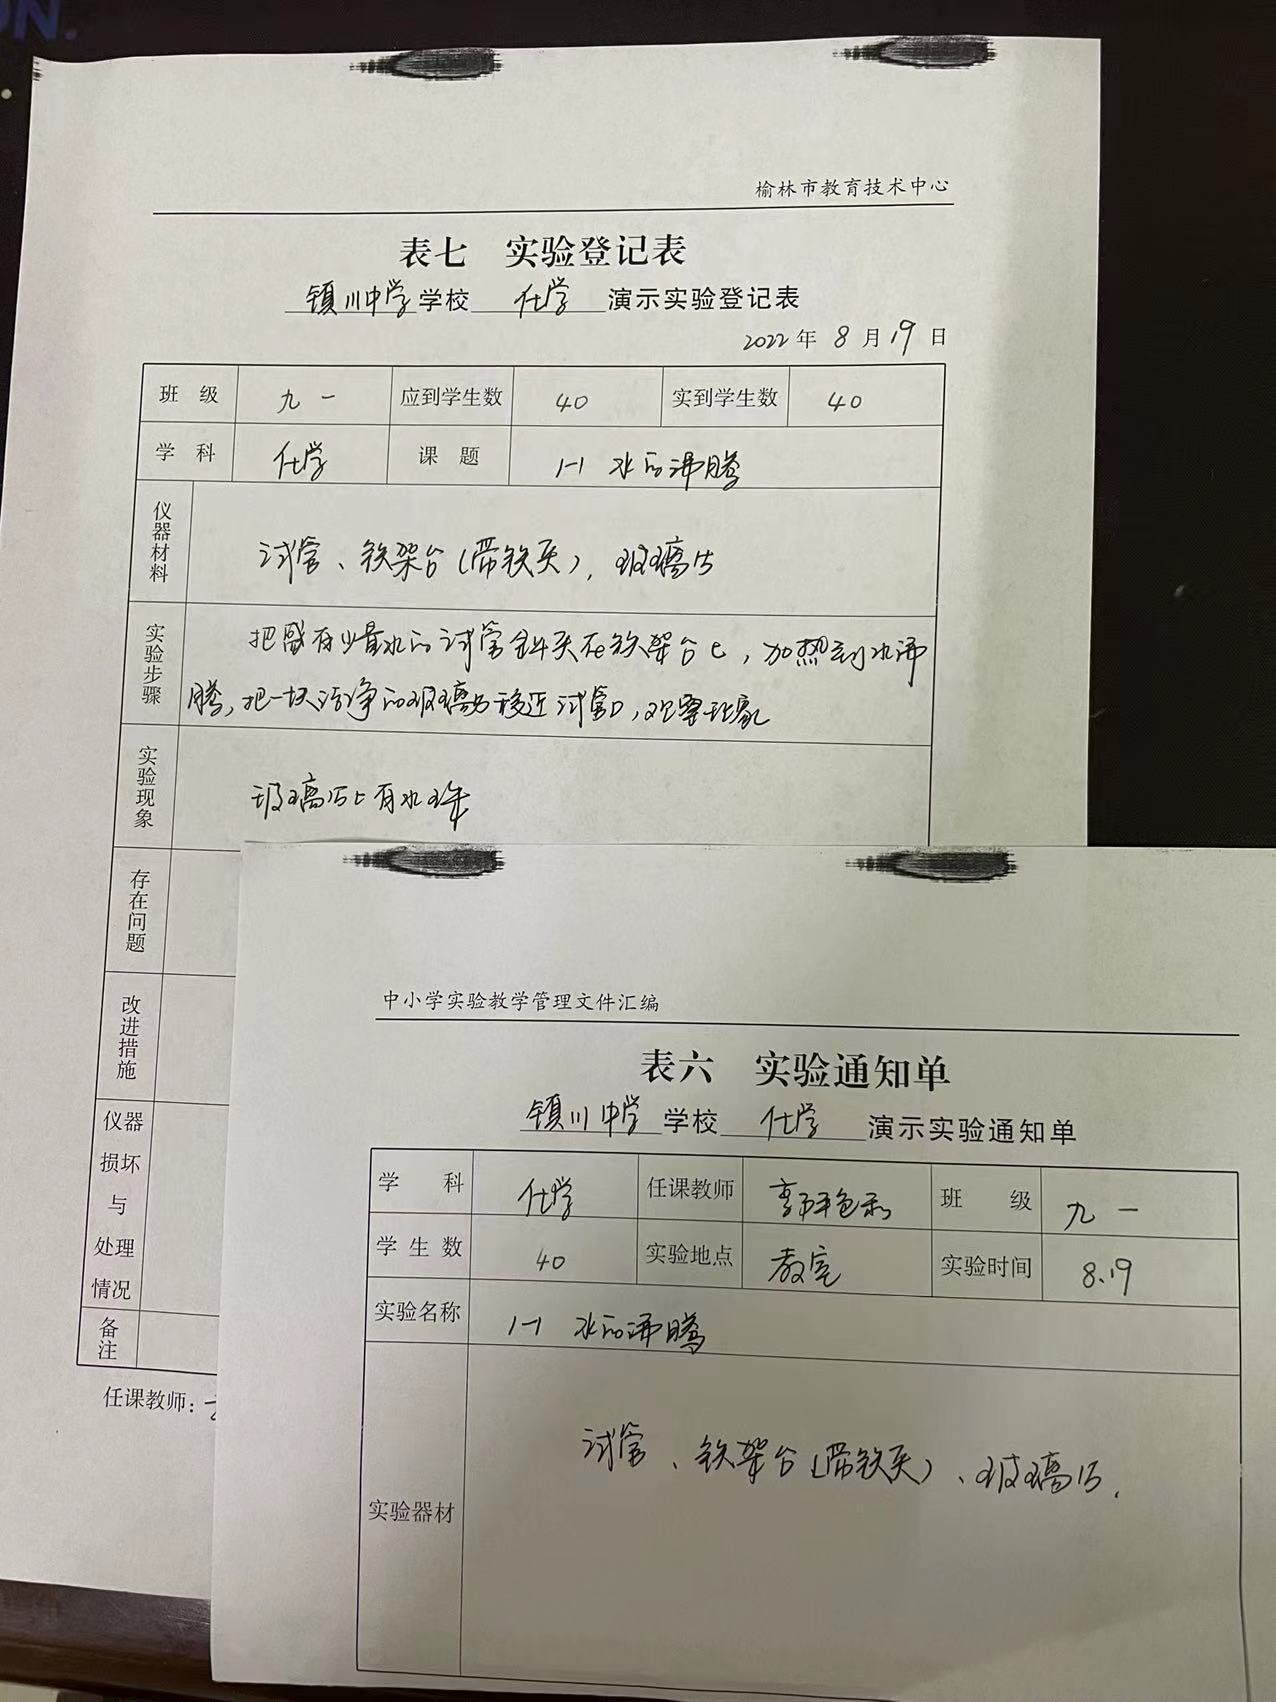 ON.
榆林市教育技术中心
表七 实验登记表
镇川中学学校 化学 演示实验登记表
2022年 8月19日
班 级 九一 应到学生数 40 实到学生数 40
学 科 化学 课 题 1-1 水的沸腾
仪器材料 试管、铁架台(带铁夹)，玻璃片
实验步骤 把盛有少量水的试管斜夹在铁架台上，加热到水沸
腾，把一块洁净的玻璃片移近试管口，观察现象
实验现象 玻璃片上有水珠
存在问题
改进措施
仪器
损坏
与
处理
情况
备注
任课教师：
中小学实验教学管理文件汇编
表六 实验通知单
镇川中学 学校 化学 演示实验通知单
学 科 化学 任课教师 班 级 九一
学 生 数 40 实验地点 教室 实验时间 8.19
实验名称 1-1 水的沸腾
试管、铁架台(带铁夹)、玻璃片，
实验器材